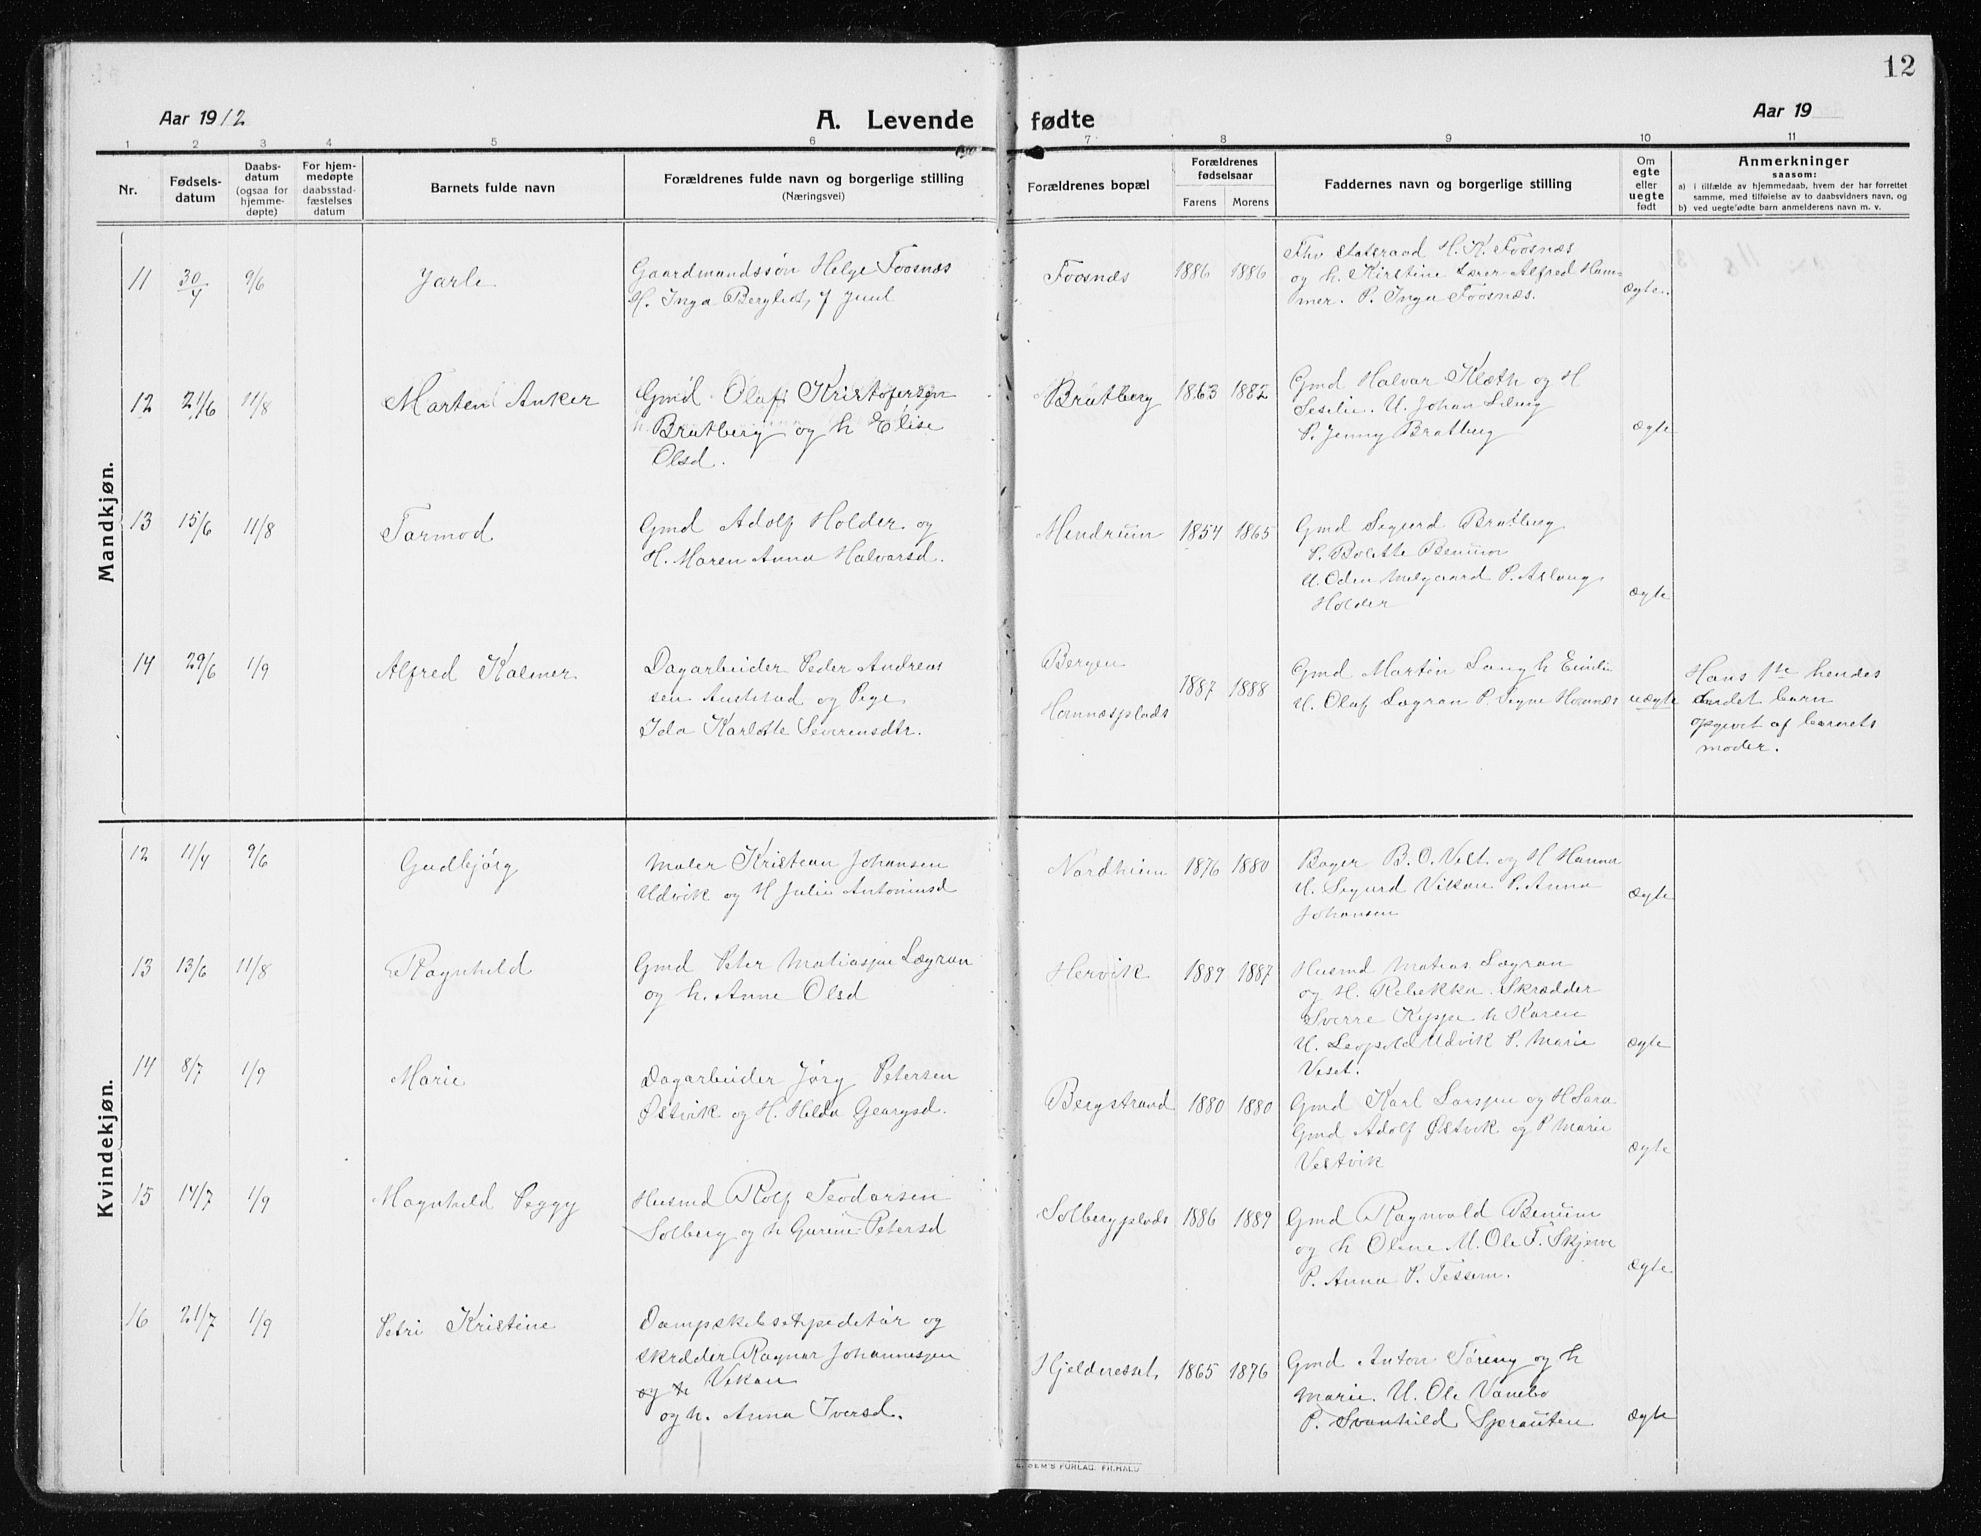 12
Aar 1912
A. Levende fødte
Aar 19
1 2 3 4 5 6 7 8 9 10 11
Nr.
Fødsels-
datum
Daabs-
datum
(ogsaa for
hjemme-
døpte)
For hjem-
medøpte
daabsstad-
fæstelses
datum
Barnets fulde navn
Forældrenes fulde navn og borgerlige stilling
(Næringsvei)
Forældrenes bopæl
Forældrenes
fødselsaar
Farens Morens
Faddernes navn og borgerlige stilling
Om
egte
eller
uegte
født
Anmerkninger
saasom:
a) i tilfælde av hjemmedaab, hvem der har forrettet
samme, med tilføielse av to daabsvidners navn, og
b) ved uegte fødte barn anmelderens navn m. v.
Mandkjøn.
11 30/4 9/6 Jarle
Gaardmandssøn Helge Foosnæs
H. Inga Bergliot, f Juul
Foosnæs 1886 1886
Fhv Statsraad H. K. Foosnæs
og h. Kirstine Lærer Alfred Ham-
mer. P. Inga Foosnæs.
ægte.
12 21/6 11/8 Marten Anker
Gmd Olaf Kristofersen
Bratberg og h Elise
Olsd.
Bratberg 1863 1882
Gmd Halvar Kleth og H
Seselie. U. Johan
P. Jenny Bratberg
ægte
13 15/6 11/8 Tarmod
Gmd Adolf Holder og
H. Maren Anna Halvarsd.
Hendrum 1854 1865
Gmd Sigurd Bratberg
P. Bolette Benum
U. Oden Melgaard P. Aslaug
Holder
ægte
14 29/6 1/9 Alfred Kalmer
Dagarbeider Peder Andreas
sen Aunstad og Pige
Ida Karlotte Severensdtr.
Bergen
Hovnæsplads
1887 1888
Gmd Martin Saug h Emilie
U. Olaf Lægran P. Signe Hovnæs
uægte
Hans 1ste hendes
andet barn
opgivet af barnets
moder.
Kvindekjøn.
12 11/4 9/6 Gudbjørg
Maler Kristian Johansen
Udvik og H Julie Antoniusd
Nordheim 1876 1880
Bager B. O. Velt og H Hanna
U. Sigurd Vikan P. Anna
Johansen
ægte
13 13/6 11/8 Ragnhild
Gmd Peter Matiasjen Lægran
og h. Anne Olsd
Hervik 1889 1887
Husmd Matias Lægran
og H. Rebekka. Skrædder
Sverre Kippe h Karen
U. Leopold Udvik P. Marie
Veset.
ægte
14 8/7 1/9 Marie
Dagarbeider Jørg Petersen
Østvik og H. Hilda Georgsd.
Bergstrand 1880 1880
Gmd Karl Larsjen og H Sara
Gmd Adolf Østvik og P Marie
Vestvik
ægte
15 14/7 1/9 Magnhild Peggy
Husmd Rolf Teodorsen
Solberg og h Gurine Petersd
Solbergplads 1886 1889
Gmd Ragnvald Benum
og h Oline U. Ole F. Skjerve
P. Anna P. Tessem.
ægte
16 21/7 1/9 Petri Kristine
Dampskibsexpeditør og
skrædder Ragnar Johannesjen
og h Vikan
og h. Anna Iversd.
Hjeldnesset, 1865 1876
Gmd Anton Tøreng og h
Marie. U. Ole Vanebo
P. Svanhild Sprauten
ægte
SEM'S FORLAG. FR.HALD